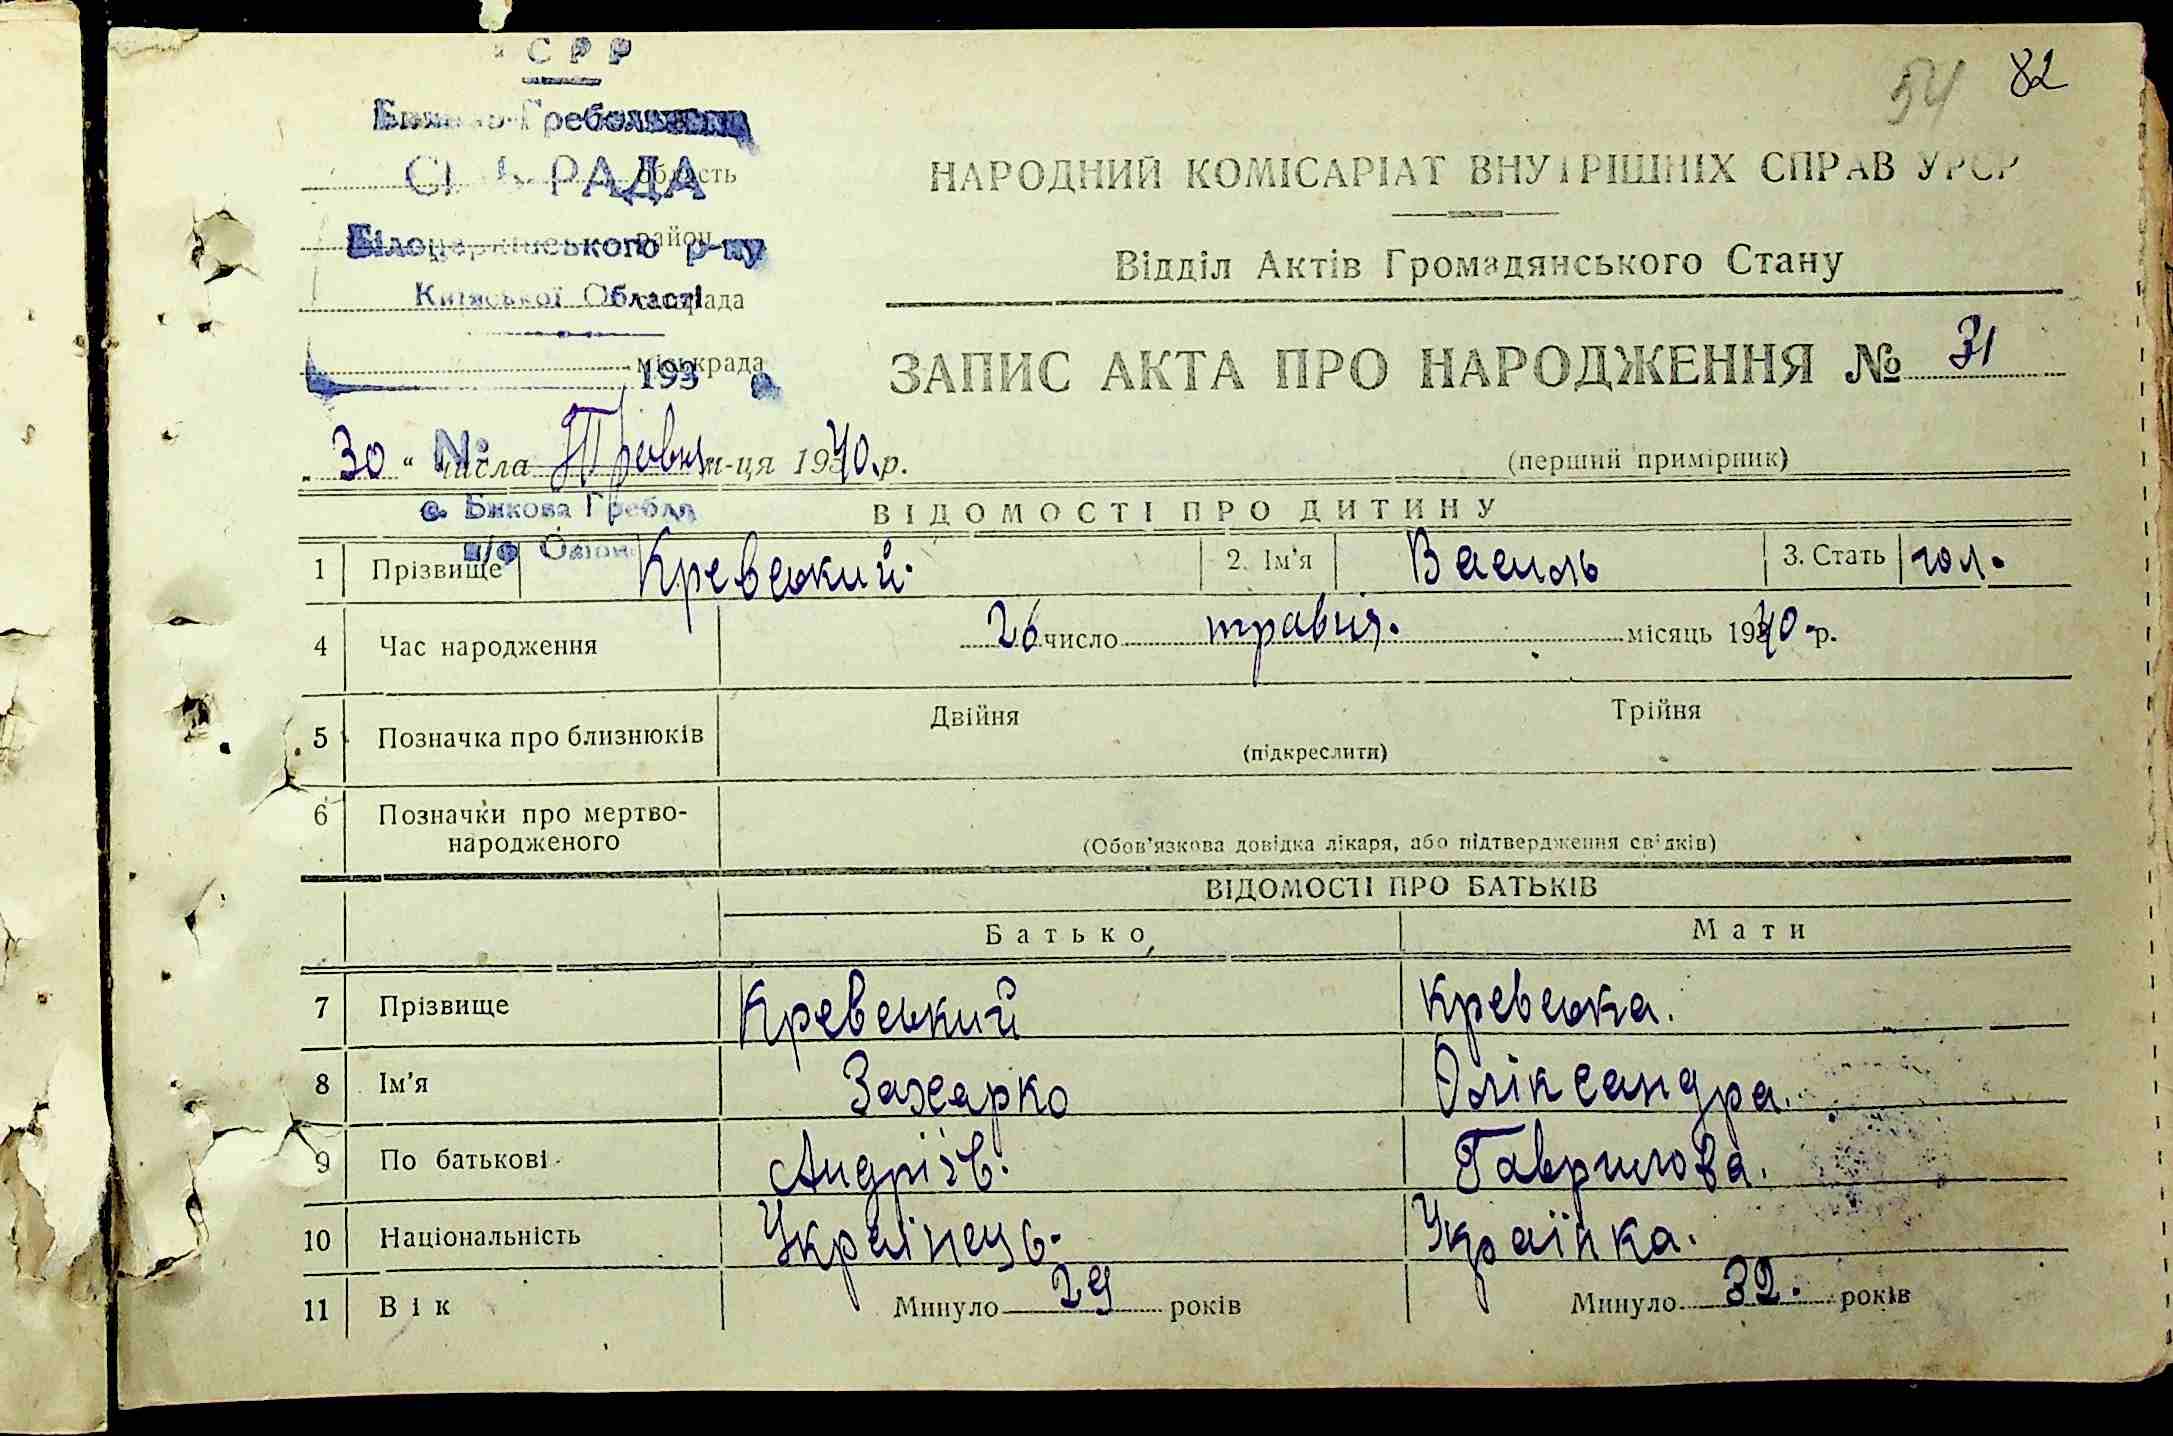 СРР
54 82
Биково-Гребельська
СІЛЬРАДА
область
НАРОДНИЙ КОМІСАРІАТ ВНУТРІШНІХ СПРАВ УРСР
Білоцерківського р-ну
район
Відділ Актів Громадянського Стану
Київської Області
сільрада
міськрада
193
ЗАПИС АКТА ПРО НАРОДЖЕННЯ № 31
№
„30" числа Травня м-ця 1940 р.
(перший примірник)
с. Бикова Гребля
ВІДОМОСТІ ПРО ДИТИНУ
п/о
1 Прізвище Кревський. 2. Ім'я Василь 3. Стать чол.
4 Час народження 26 число травня. місяць 1940 р.
5 Позначка про близнюків Двійня Трійня
(підкреслити)
6 Позначки про мертво-
народженого
(Обов'язкова довідка лікаря, або підтвердження свідків)
ВІДОМОСТІ ПРО БАТЬКІВ
Батько Мати
7 Прізвище Кревський Кревська.
8 Ім'я Захарко Оліксандра.
9 По батькові Андріїв. Гаврилова.
10 Національність Українець. Українка.
11 Вік Минуло 29 років Минуло 32. років